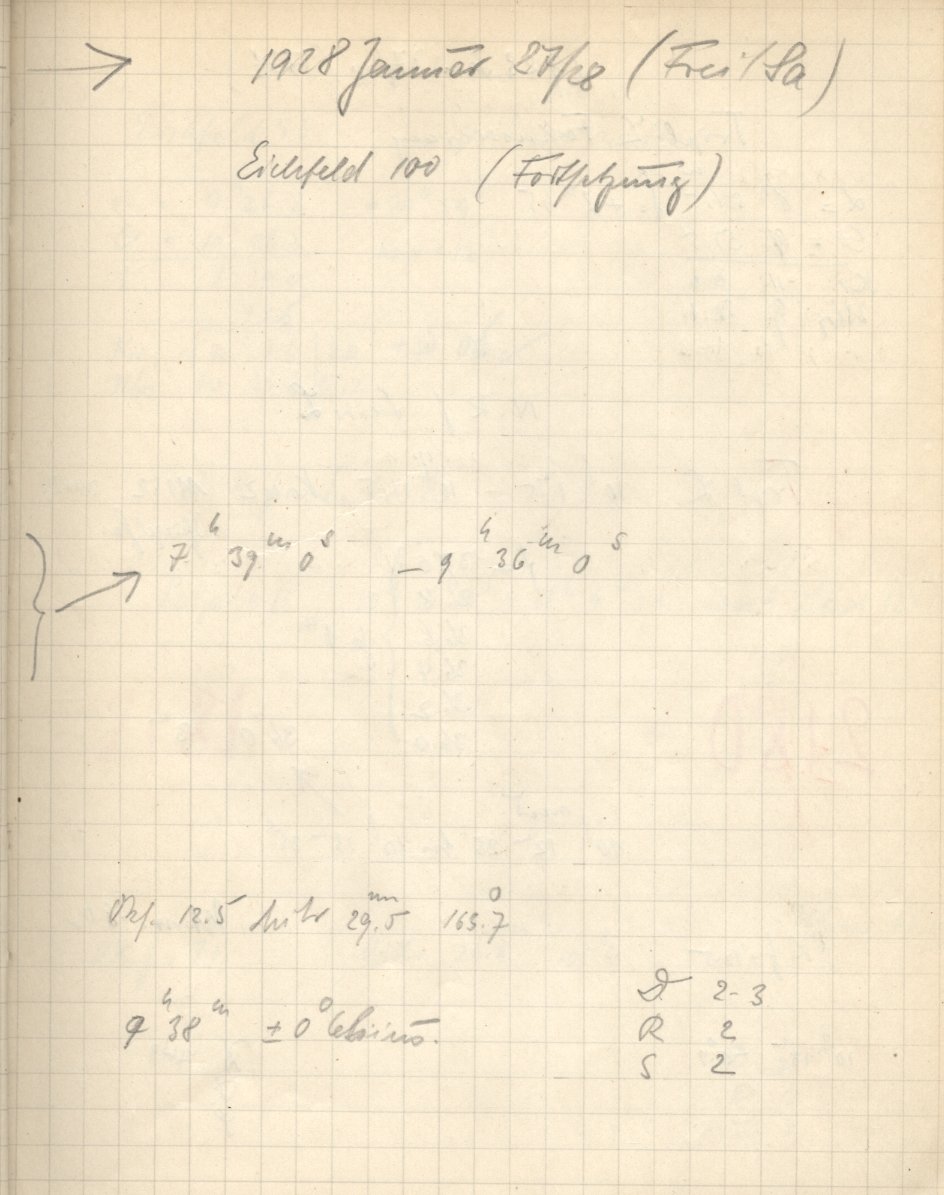 1928 Januar 27/28 (Frei/Sa)
Eichfeld 100 (Fortsetzung)
7h 39m 0s – 9h 36m 0s
Okf. 12.5 29.5mm 163.7°
9h 38m ± 0° Celsius.
D 2-3
R 2
S 2